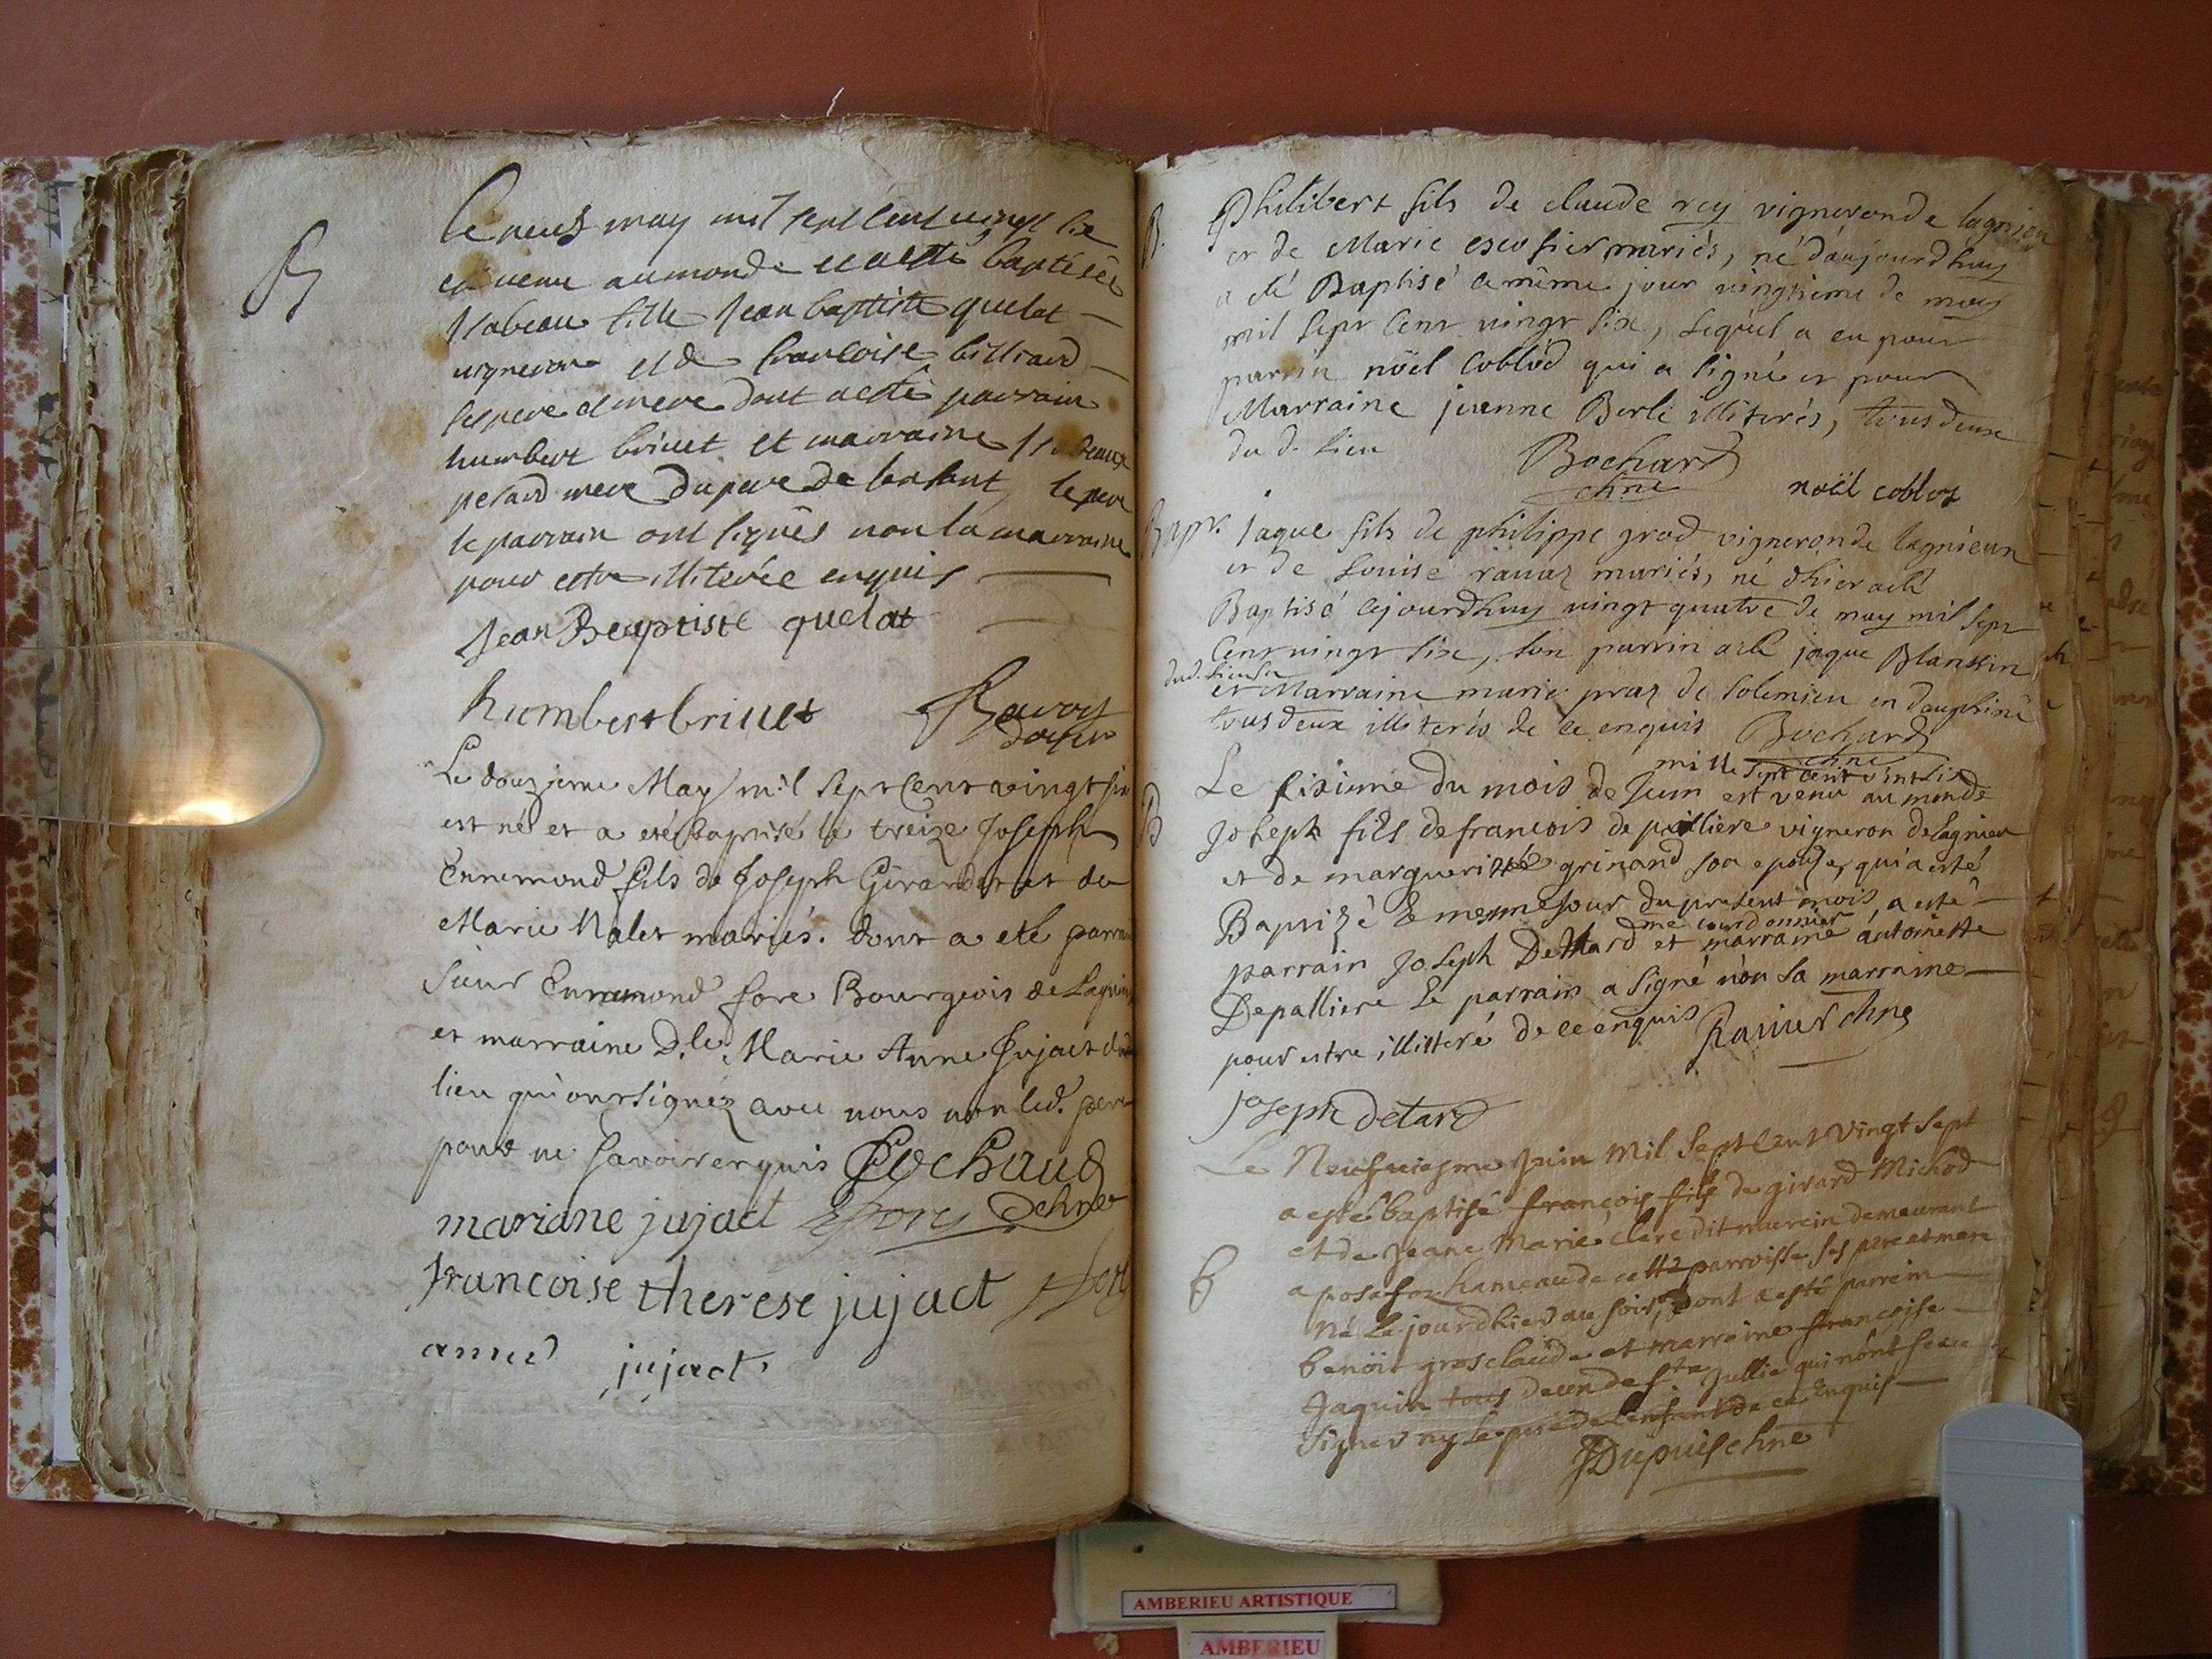 B
Le neuf may mil sept cent vingt six
est venu au monde et a esté baptisée
Isabeau fille Jean baptiste quelat
vigneron et de francoise billiard
ses pere et mere dont a esté parrain
humbert briuet et marraine
mere du pere de lenfant le pere
le parrain ont signés non la marraine
pour estre illiterée enquis
Jean Beaptiste quelat
humbert briuet
Le douzieme May mil sept cent vingt six
est né et a eté baptisé le treize Joseph
Ennemond fils de Joseph Girardet et de
Marie Nalet mariés. dont a eté parrain
sieur Ennemond fore Bourgeois de Lagnieu
et marraine D.le Marie Anne Jujact dud
lieu qui ont signéz avec nous non led. pere
pour ne savoir enquis Bochard
mariane jujact Efore chne
francoise therese jujact
jujact
B. Philibert fils de claude rey vigneron de lagnieu
et de Marie escofier mariés, né d'aujourdhuy
a eté Baptisé ce même jour vingtieme de may
mil sept cent vingt six, lequel a eu pour
parrin nöel Coblod qui a signé et pour
Marraine jeanne Berli illiterés, tous deux
du d. lieu
Bochard
chne
noël coblod
Bapt. Jaque fils de philippe grod vigneron de lagnieu
et de Louise rauaz mariés, né d'hier a eté
Baptisé cejourdhuy vingt quatre de may mil sept
Cent vingt six, son parrin a eté jaque Blanchin
dud. lieu
et Marraine marie praz de Solemieu en dauphiné
tous deux illiterés de ce enquis Bochard
chne
mille sept cent vint six
Le sixieme du mois de Juin est venu au monde
B
Joseph fils de francois de palliere vigneron de lagnieu
et de margueritte grinand son epouse, qui a esté
Baptizé le mesme jour du present mois, a esté
me cordonnier
parrain Joseph Dethard et marraine antoinette
Depalliere le parrain a signé non la marraine
pour estre illitteré de ce enquis Rauier chne
joseph detard
Le Neufuiesme Juin Mil Sept Cent Vingt Sept
a esté baptisé françois fils de girard Michod
et de Jeane Marie Clere dit murcin demeurant
b
a posafoz hameau de cette parroisse ses pere et mere
né le jourdhier au soir, dont a esté parrein
benoit grosclaude et marraine françoise
Jaquin tous deux de Ste Jullie qui n'ont sceu
signer ny le pere de l'enfant de ce Enquis
JDupuis chne
AMBERIEU ARTISTIQUE
AMBERIEU